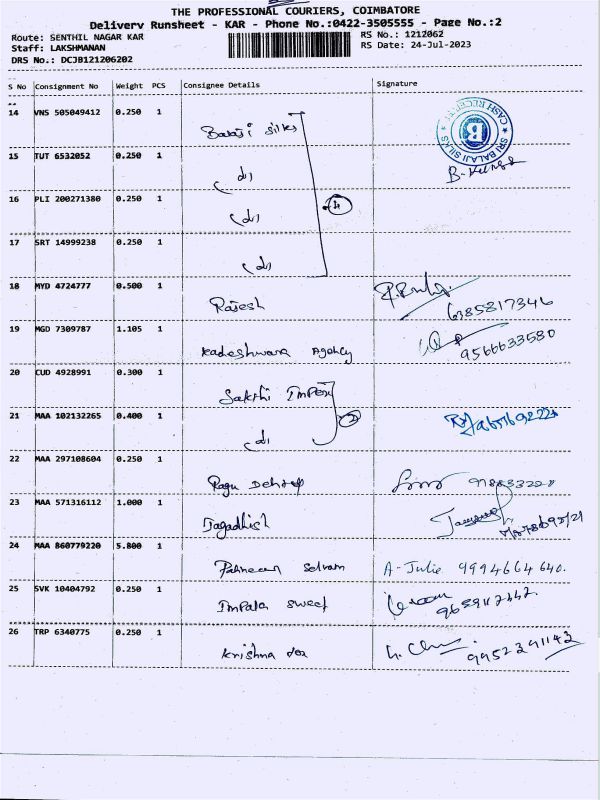 THE PROFESSIONAL COURIERS, COIMBATORE
Delivery Runsheet - KAR - Phone No.:0422-3505555 - Page No.:2
Route: SENTHIL NAGAR KAR
RS No.: 1212062
Staff: LAKSHMANAN
RS Date: 24-Jul-2023
DRS No.: DCJB121206202
S No Consignment No Weight PCS Consignee Details Signature
14 VNS 505049412 0.250 1 Balaji silks
SRI BALAJI SILKS
CASH RECEIVED
B
15 TUT 6532052 0.250 1
16 PLI 200271380 0.250 1
4
17 SRT 14999238 0.250 1
18 MYD 4724777 0.500 1 Rajesh 6385817346
19 MGD 7309787 1.105 1 Kadeshwara Agency 9566633580
20 CUD 4928991 0.300 1 Sakthi Impex
21 MAA 102132265 0.400 1
22 MAA 297108604 0.250 1 Ragu
23 MAA 571316112 1.000 1 Jagadhish
24 MAA 860779220 5.800 1 Selvam A-Julie 9994664640.
25 SVK 10404792 0.250 1 Impala sweet
26 TRP 6340775 0.250 1 Krishna 9952391142